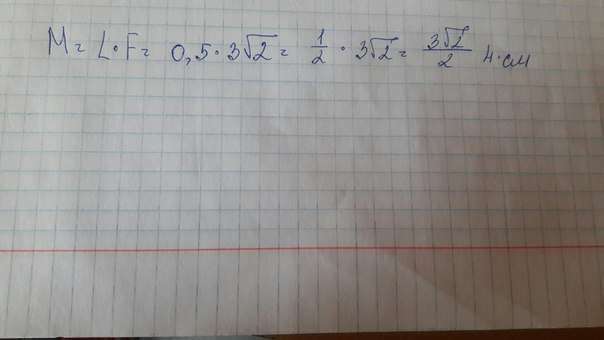 M = L · F = 0,5 · 3√2 = 1/2 · 3√2 = 3√2/2 Н·см